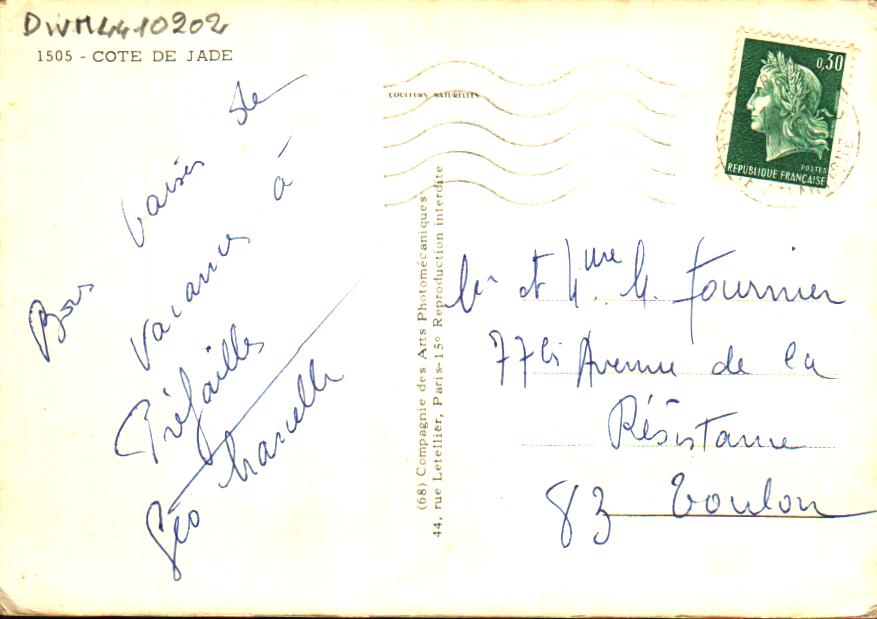 DWM4410202
1505 - COTE DE JADE
Bons baisers de
vacances à
Préfailles
Géo Marcelle
COULEURS NATURELLES
(68) Compagnie des Arts Photomécaniques
44, rue Letellier, Paris-15e Reproduction interdite
0,30
POSTES
REPUBLIQUE FRANÇAISE
Mr et Mme M. Fournier
77 bis Avenue de la
Résistance
83 Toulon